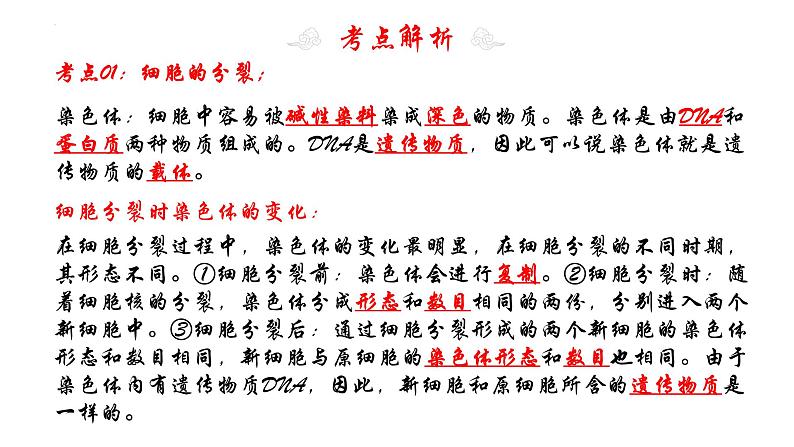 考点解析
考点01：细胞的分裂；
染色体：细胞中容易被碱性染料染成深色的物质。染色体是由DNA和
蛋白质两种物质组成的。DNA是遗传物质，因此可以说染色体就是遗
传物质的载体。
细胞分裂时染色体的变化：
在细胞分裂过程中，染色体的变化最明显，在细胞分裂的不同时期，
其形态不同。①细胞分裂前：染色体会进行复制。②细胞分裂时：随
着细胞核的分裂，染色体分成形态和数目相同的两份，分别进入两个
新细胞中。③细胞分裂后：通过细胞分裂形成的两个新细胞的染色体
形态和数目相同，新细胞与原细胞的染色体形态和数目也相同。由于
染色体内有遗传物质DNA，因此，新细胞和原细胞所含的遗传物质是
一样的。